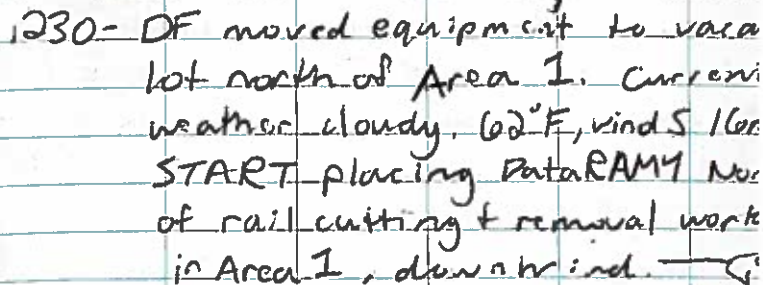 1230- DF moved equipment to vaca
lot north of Area 1. Curren
weather cloudy, 62°F, wind S 16
START placing DataRAM4 Nor
of rail cutting + removal work
in Area 1, downwind.